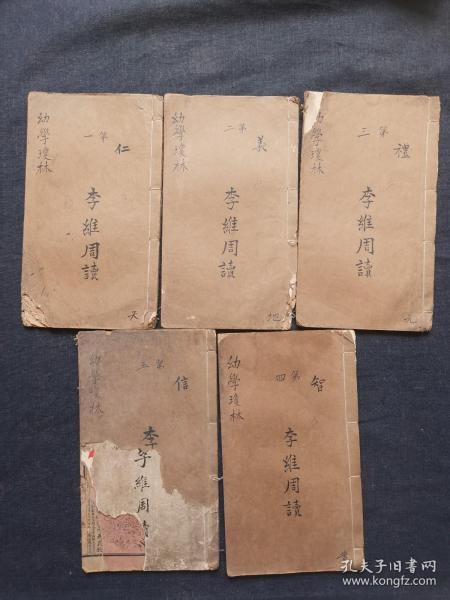 幼學瓊林
第一
仁
李維周讀
天
幼學瓊林
第二
美
李維周讀
地
幼學瓊林
第三
禮
李維周讀
元
幼學瓊林
第五
信
李維周讀
幼學瓊林
第四
智
李維周讀
孔夫子旧书网
www.kongfz.com